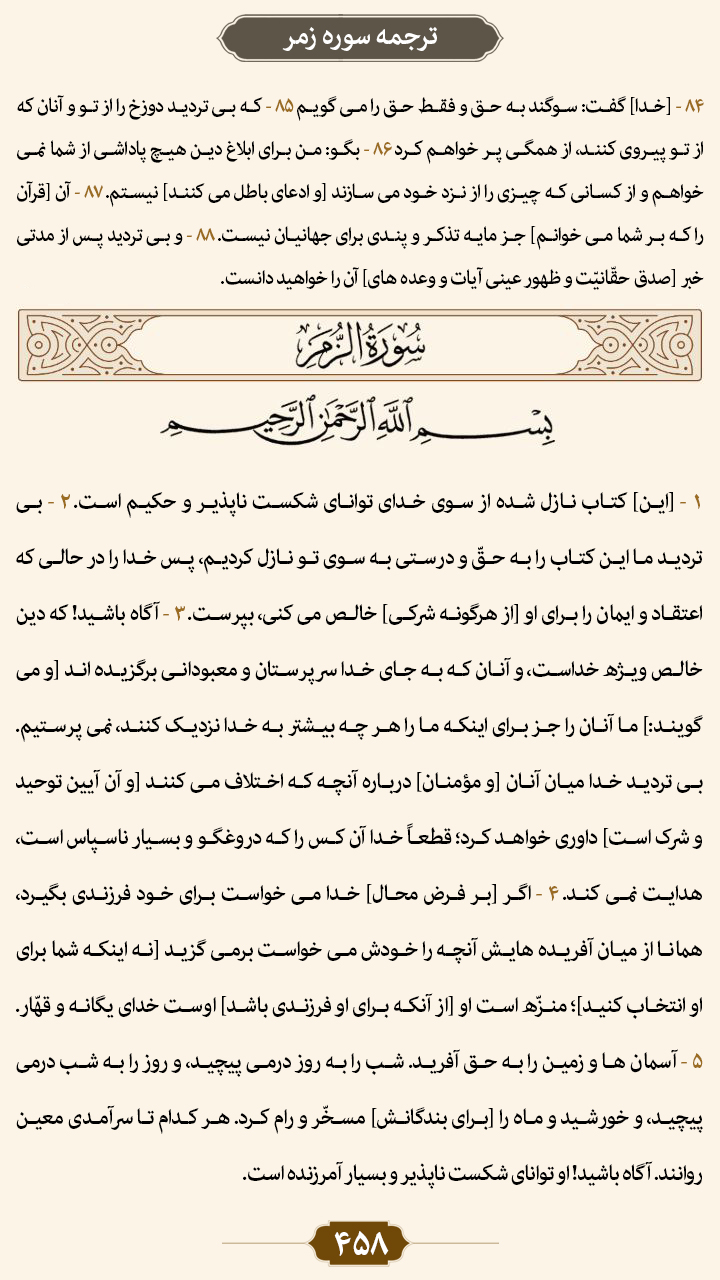 ترجمه سوره زمر
۸۴ - [خدا] گفت: سوگند به حق و فقط حق را می گویم ۸۵ - که بی تردید دوزخ را از تو و آنان که
از تو پیروی کنند، از همگی پر خواهم کرد ۸۶ - بگو: من برای ابلاغ دین هیچ پاداشی از شما نمی
خواهم و از کسانی که چیزی را از نزد خود می سازند [و ادعای باطل می کنند] نیستم. ۸۷ - آن [قرآن
را که بر شما می خوانم] جز مایه تذکر و پندی برای جهانیان نیست. ۸۸ - و بی تردید پس از مدتی
خبر [صدق حقّانیّت و ظهور عینی آیات و وعده های] آن را خواهید دانست.
سُورَةُ الزُّمَرِ
بِسْمِ اللَّهِ الرَّحْمَٰنِ الرَّحِيمِ
۱ - [این] کتاب نازل شده از سوی خدای توانای شکست ناپذیر و حکیم است. ۲ - بی
تردید ما این کتاب را به حقّ و درستی به سوی تو نازل کردیم، پس خدا را در حالی که
اعتقاد و ایمان را برای او [از هرگونه شرکی] خالص می کنی، بپرست. ۳ - آگاه باشید! که دین
خالص ویژه خداست، و آنان که به جای خدا سرپرستان و معبودانی برگزیده اند [و می
گویند:] ما آنان را جز برای اینکه ما را هر چه بیشتر به خدا نزدیک کنند، نمی پرستیم.
بی تردید خدا میان آنان [و مؤمنان] درباره آنچه که اختلاف می کنند [و آن آیین توحید
و شرک است] داوری خواهد کرد؛ قطعاً خدا آن کس را که دروغگو و بسیار ناسپاس است،
هدایت نمی کند. ۴ - اگر [بر فرض محال] خدا می خواست برای خود فرزندی بگیرد،
همانا از میان آفریده هایش آنچه را خودش می خواست برمی گزید [نه اینکه شما برای
او انتخاب کنید]؛ منزّه است او [از آنکه برای او فرزندی باشد] اوست خدای یگانه و قهّار.
۵ - آسمان ها و زمین را به حق آفرید. شب را به روز درمی پیچید، و روز را به شب درمی
پیچید، و خورشید و ماه را [برای بندگانش] مسخّر و رام کرد. هر کدام تا سرآمدی معین
روانند. آگاه باشید! او توانای شکست ناپذیر و بسیار آمرزنده است.
۴۵۸